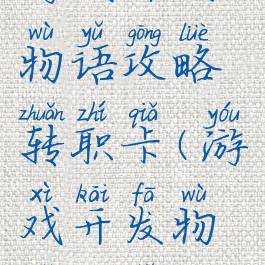 wù yǔ gōng lüè
物语攻略
zhuǎn zhí qiǎ yóu
转职卡(游
xì kāi fā wù
戏开发物